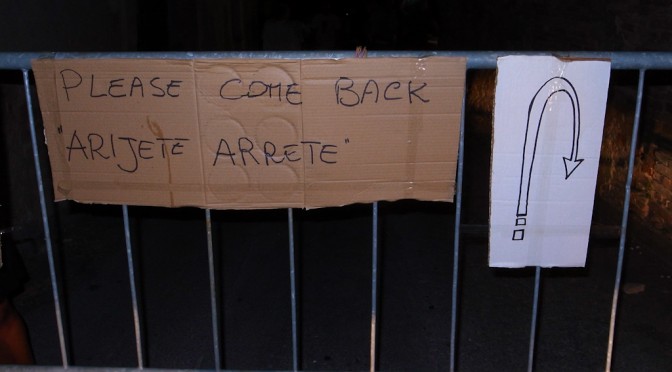 PLEASE COME BACK
"ARIJETE ARRETE"